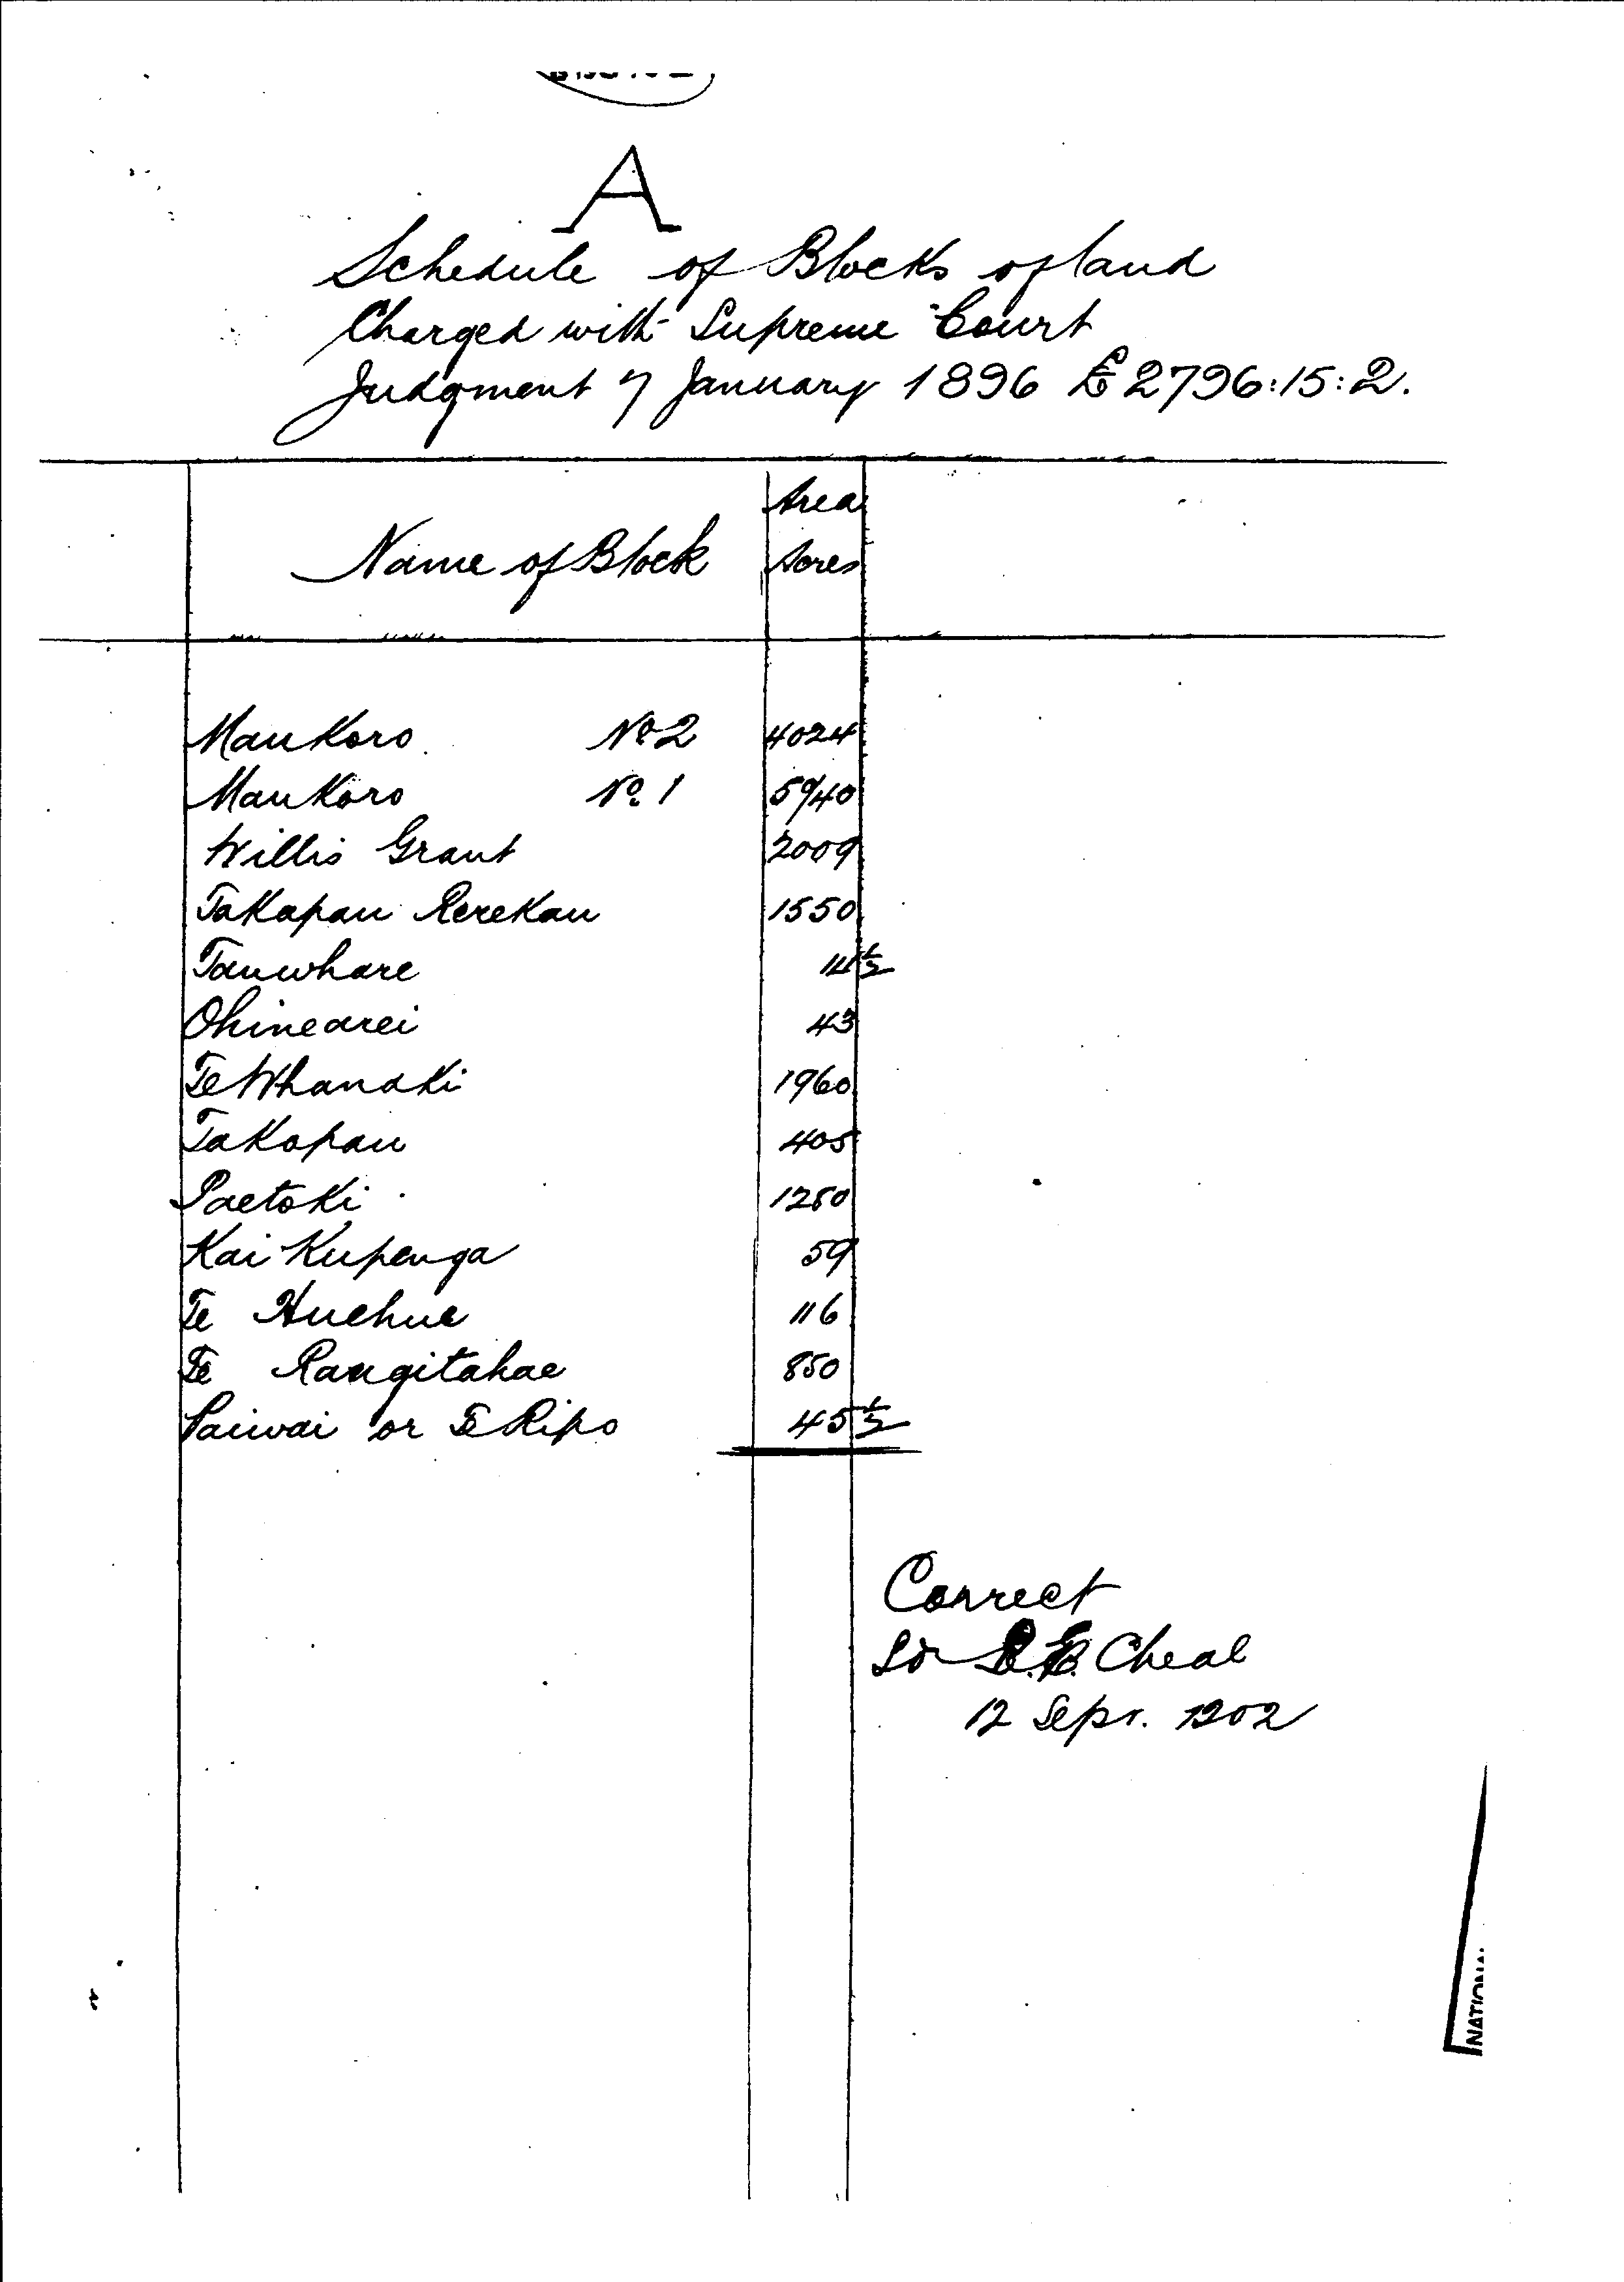 A
Schedule of Blocks of land
Charged with Supreme Court
Judgment 7 January 1896 £2796:15:2.
Area
Name of Block Acres
Maukoro No 2 4024
Maukoro No. 1 5940
Willis Grant 2009
Takapau Rerekau 1550
Tauwhare 14½
Ohinearei 43
Te Whanaki 1960
Takapau 405
Paetoki 1280
Kai Kupenga 59
Te Huehue 116
Te Rangitahae 850
Paiwai or Te Ripo 45½
Correct
Cheal
12 Sepr. 1902
NATIONAL